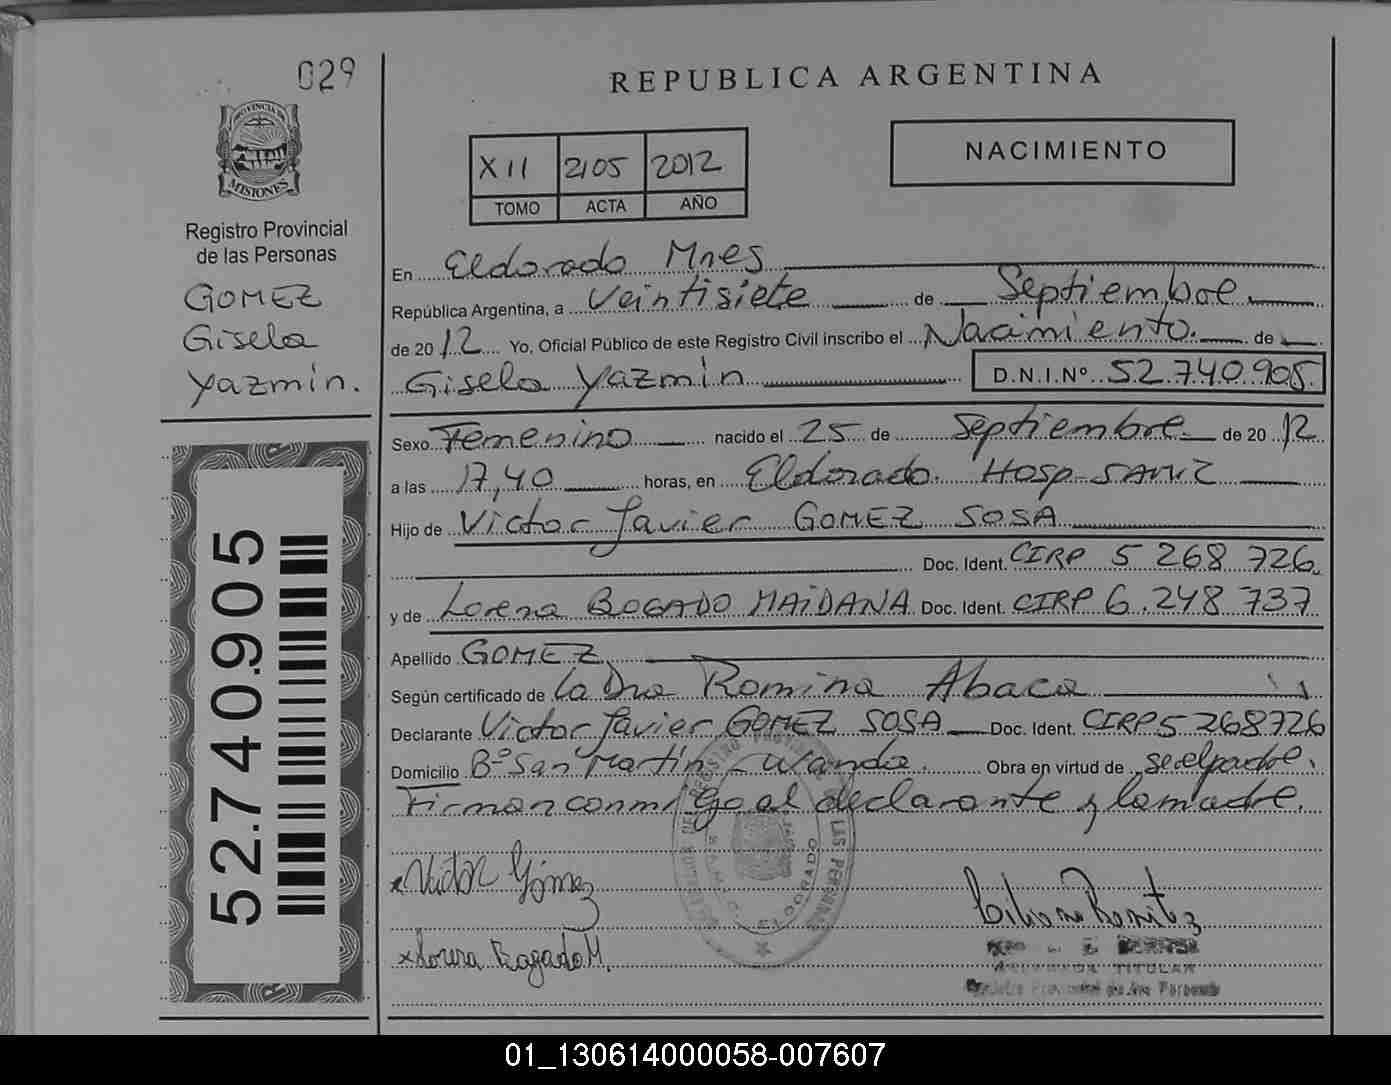 029
REPUBLICA ARGENTINA
PROVINCIA DE
MISIONES
XII 2105 2012
TOMO ACTA AÑO
NACIMIENTO
Registro Provincial
de las Personas
GOMEZ
Gisela
Yazmin.
En Eldorado Mnes
República Argentina, a Veintisiete de Septiembre
de 2012 Yo, Oficial Público de este Registro Civil inscribo el Nacimiento. de
Gisela Yazmin D.N.I.Nº 52.740.905
Sexo Femenino nacido el 25 de Septiembre de 2012
a las 17,40 horas, en Eldorado. Hosp. SAMIC
Hijo de Victor Javier GOMEZ SOSA
Doc. Ident. CIRP 5 268 726.
y de Lorena BOGADO MAIDANA Doc. Ident. CIRP 6.248 737
Apellido GOMEZ
Según certificado de la Dra Romina Abaca
Declarante Victor Javier GOMEZ SOSA Doc. Ident. CIRP 5 268726
Domicilio Bº San Martín - Wanda. Obra en virtud de ser el padre.
Firman conmigo el declarante y la madre.
52.740.905
x Victor Gómez
x Lorena Bogado M.
ELDORADO
LAS PERSONAS
Benitez
TITULAR
01_130614000058-007607